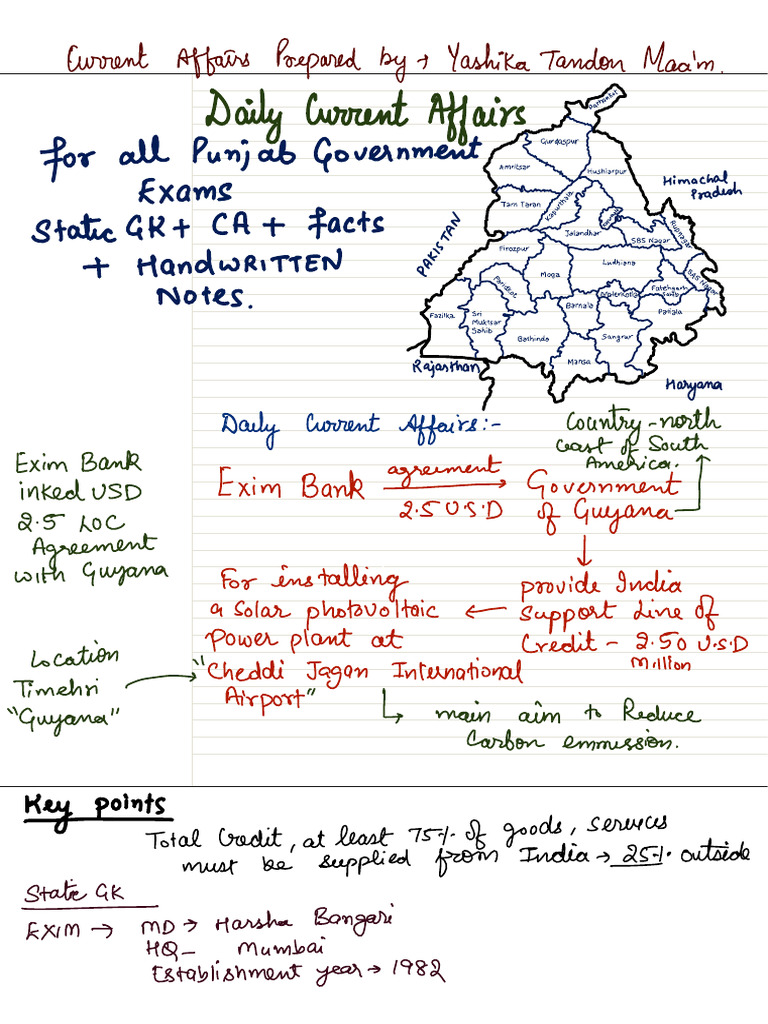 Current Affairs Prepared by → Yashika Tandon Maa'm.
Daily Current Affairs
for all Punjab Government
Exams
Static GK + CA + facts
+ HANDWRITTEN
Notes.
Pathankot
Gurdaspur
Amritsar
Hushiarpur
Himachal
Pradesh
Tarn Taran
Kapurthala
Jalandhar
SBS Nagar
Rupnagar
PAKISTAN
Firozpur
Moga
Ludhiana
SAS Nagar
Faridkot
Fatehgarh
Sahib
Malerkotla
Barnala
Patiala
Fazilka
Sri
Muktsar
Sahib
Bathinda
Sangrur
Mansa
Rajasthan
Haryana
Daily Current Affairs:-
Country - north
east of South
America.
Exim Bank
inked USD
2.5 LOC
Agreement
with Guyana
Exim Bank agreement → Government
2.5 U.S.D of Guyana
provide India
Support Line of
Credit - 2.50 U.S.D
Million
←
For installing
a Solar photovoltaic
Power plant at
"Cheddi Jagan International
Airport"
Location
Timehri
"Guyana"
main aim to Reduce
Carbon emmission.
Key points
Total Credit, at least 75% of goods, services
must be supplied from India → 25% outside
Static GK
EXIM → MD → Harsha Bangari
HQ - Mumbai
Establishment year → 1982